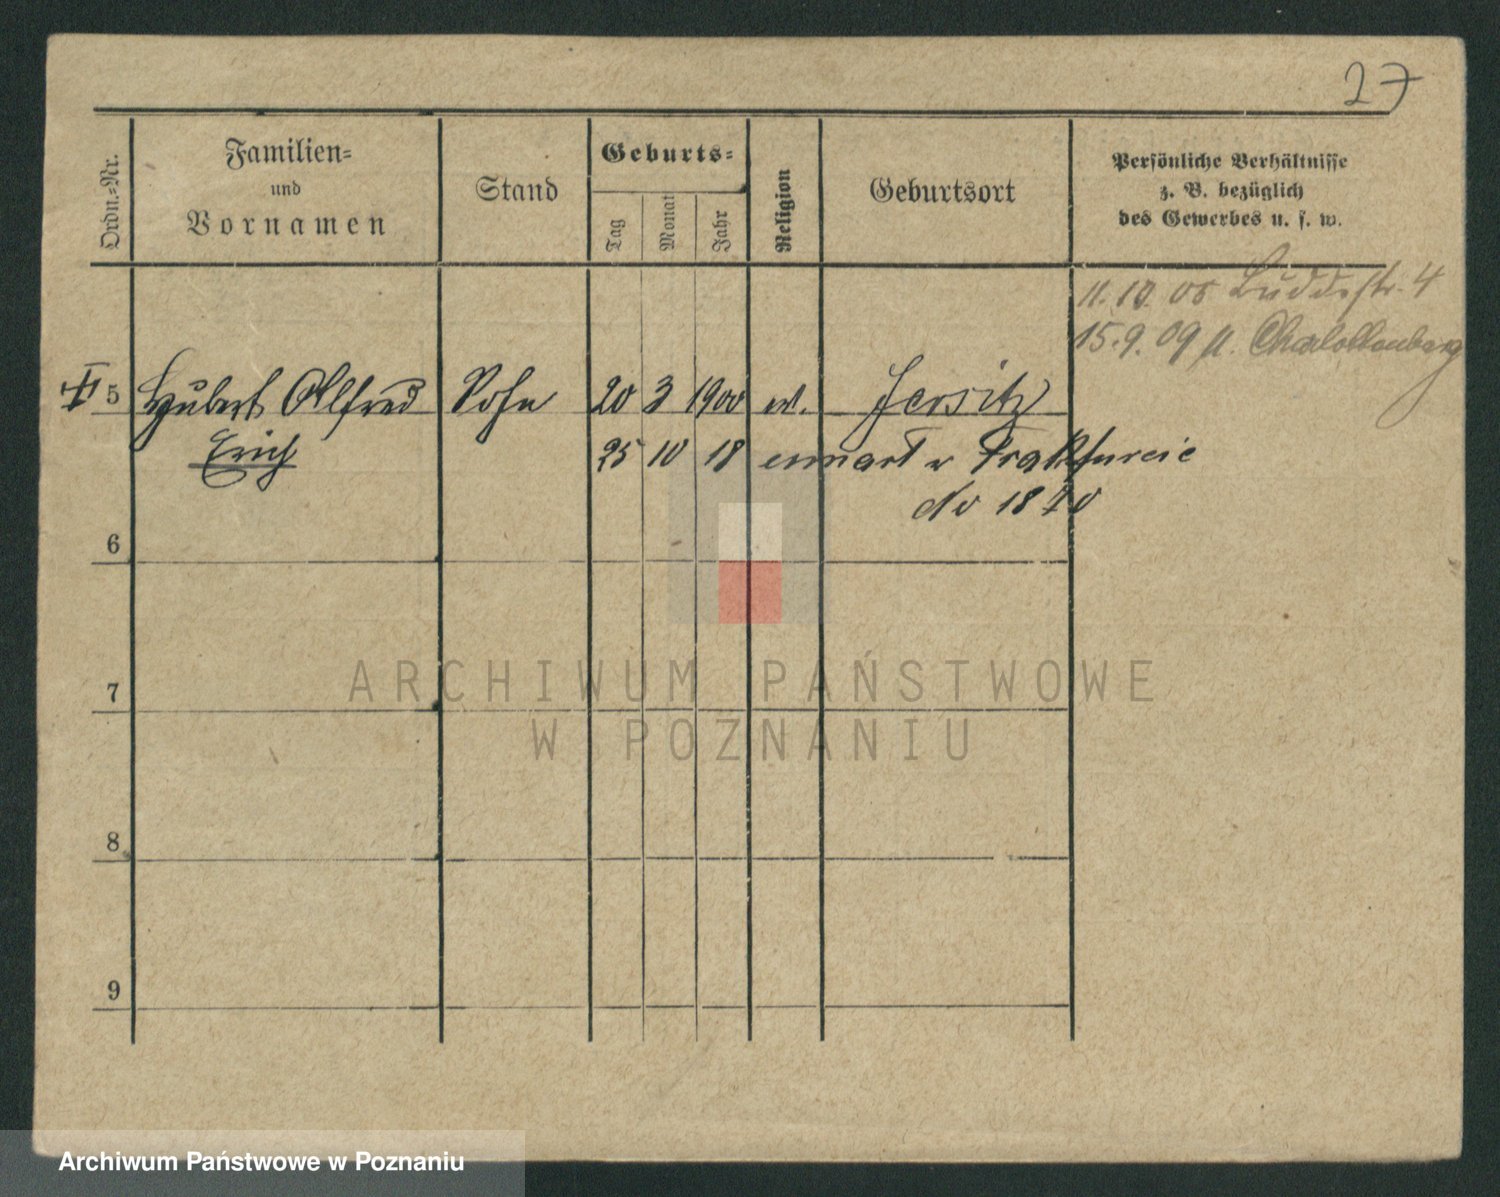 27
Ordn.-Nr.
Familien-
und
Vornamen
Stand
Geburts-
Tag
Monat
Jahr
Religion
Geburtsort
Persönliche Verhältnisse
z. B. bezüglich
des Gewerbes u. s. w.
11. 10. 05 Buddestr. 4
15. 9. 09 n. Charlottenberg
5 Hubert Alfred Sohn 20 3 1900 ev. Jersitz
Erich 25 10 18 w Frakfurcie
6
7
8
9
ARCHIWUM PAŃSTWOWE
W POZNANIU
Archiwum Państwowe w Poznaniu